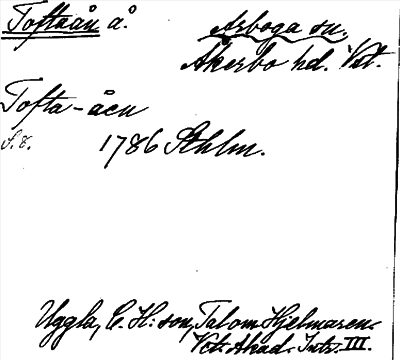 Toftaån å. Arboga sn.
Åkerbo hd. Vstl.
Tofta-åen
S. 8. 1786 Sthlm.
Uggla, C. H:son, Tal om Hjelmaren.
Vet. Akad. Intr. III.